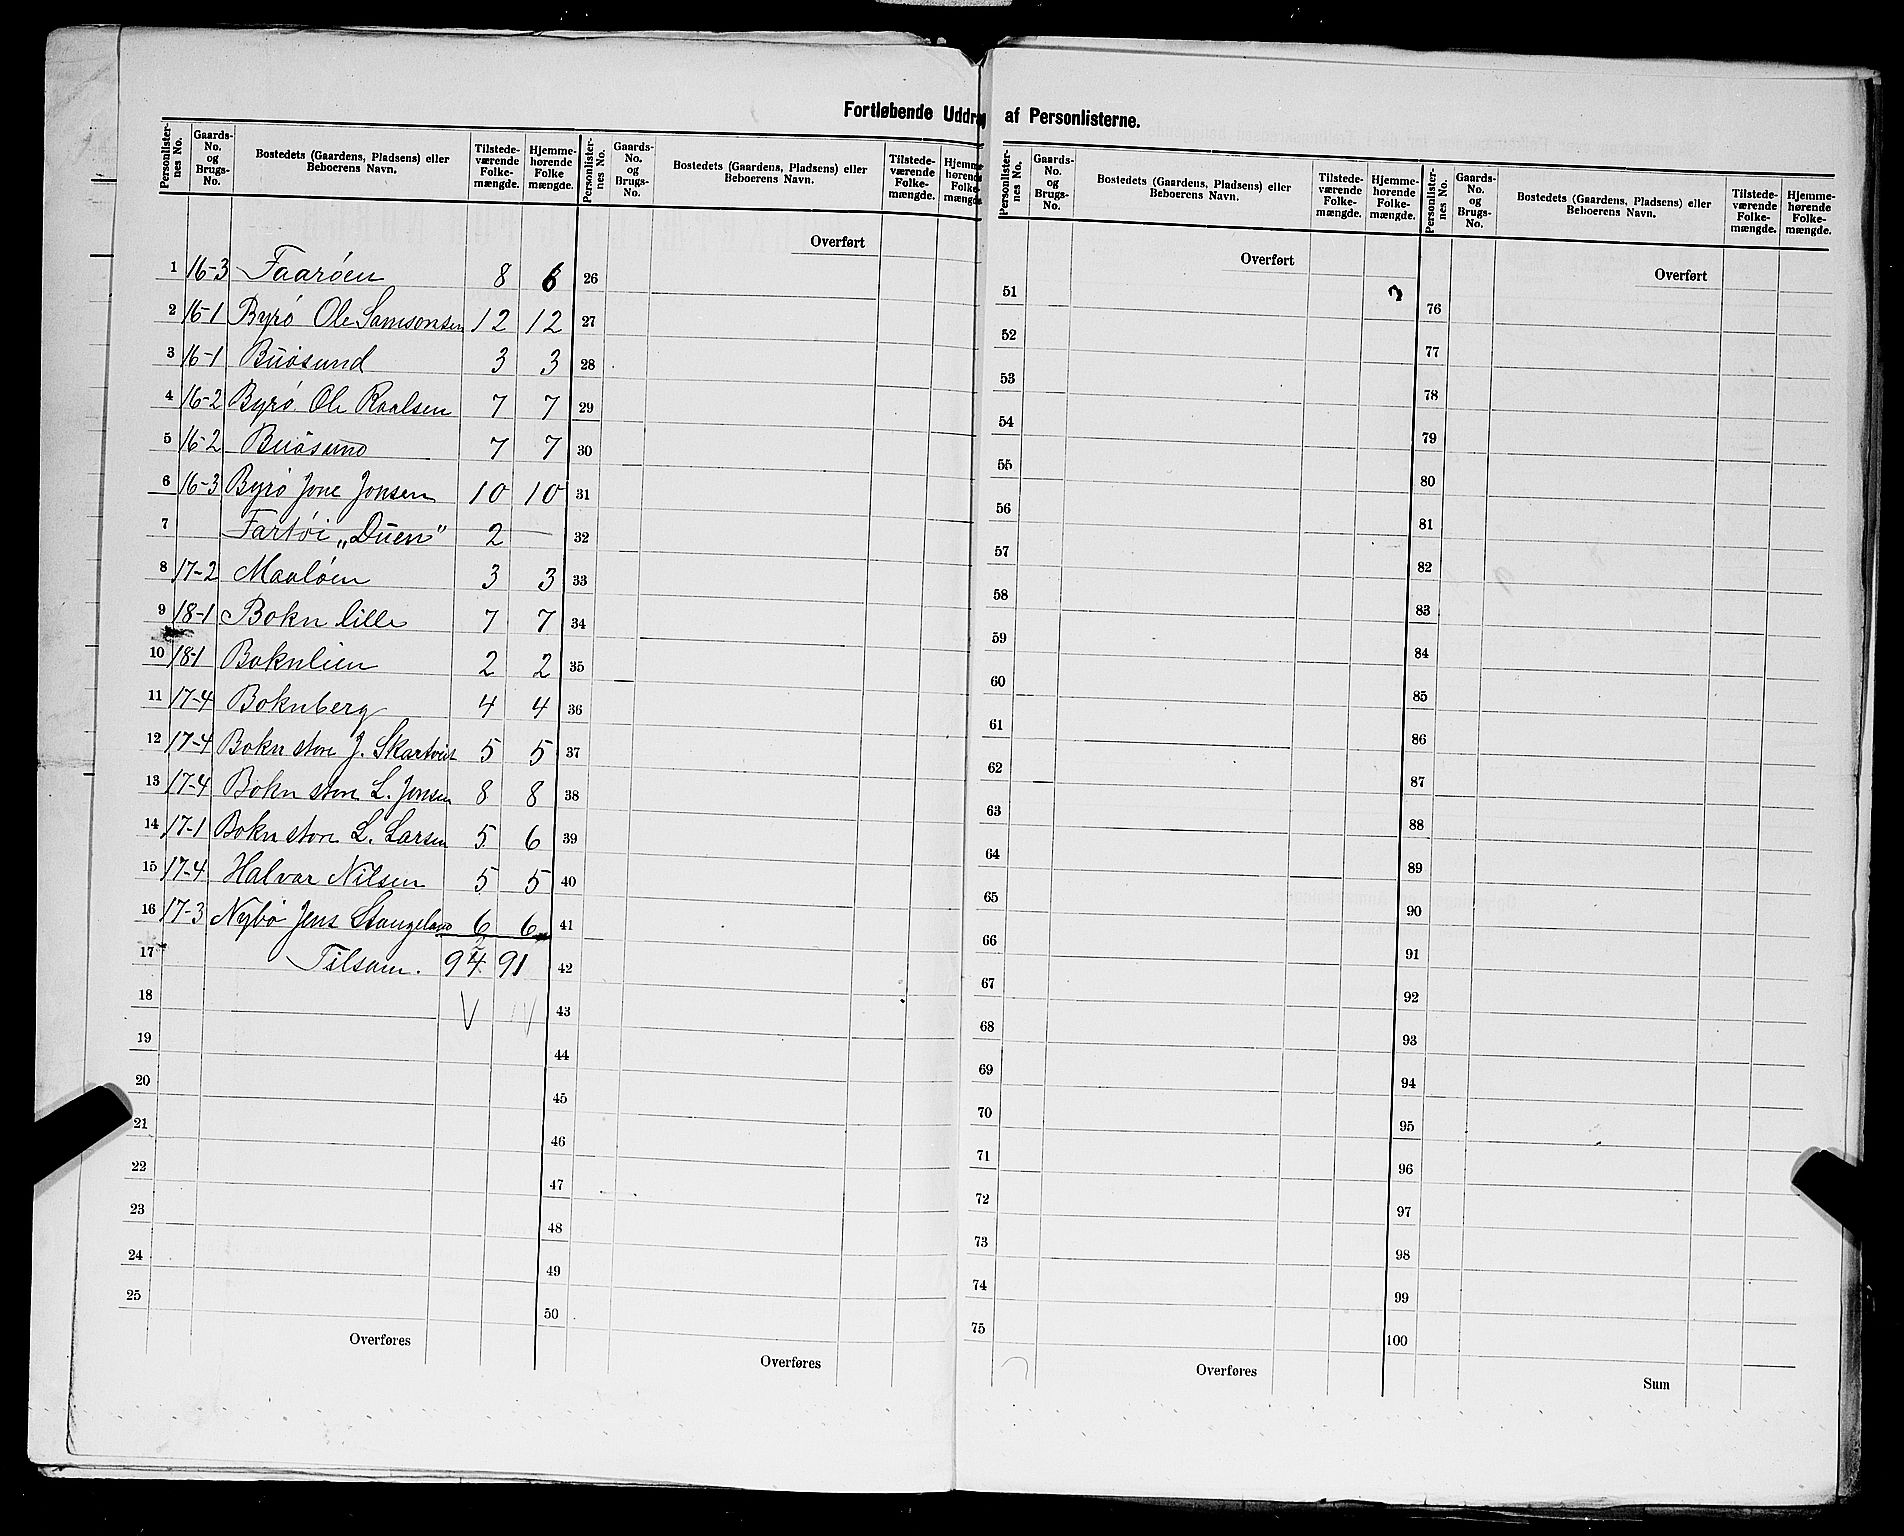 Fortløbende Uddrag af Personlisterne.
Personlisternes No. | Gaards-No. og Brugs-No. | Bostedets (Gaardens, Pladsens) eller Beboerens Navn. | Tilstedeværende Folkemængde. | Hjemmehørende Folkemængde.
1 16-3 Faarøen 8 6
2 16-1 Byrø Ole Samsonsen 12 12
3 16-1 Buøsund 3 3
4 16-2 Byrø Ole Roalsen 7 7
5 16-2 Buøsund 7 7
6 16-3 Byrø Jone Jonsen 10 10
7 Fartøi „Duen" 2 —
8 17-2 Maaløen 3 3
9 18-1 Bokn lille 7 7
10 18-1 Boknlien 2 2
11 17-4 Boknberg 4 4
12 17-4 Bokn store J. Skartveit 5 5
13 17-4 Bokn store L. Jonsen 8 8
14 17-1 Bokn store L. Larsen 5 6
15 17-4 Halvar Nilsen 5 5
16 17-3 Nybø Jens Stangeland 6 6
17 Tilsam. 94 91
18
19
20
21
22
23
24
25
Overføres
Personlisternes No. | Gaards-No. og Brugs-No. | Bostedets (Gaardens, Pladsens) eller Beboerens Navn. | Tilstedeværende Folkemængde. | Hjemmehørende Folkemængde
Overført
26
27
28
29
30
31
32
33
34
35
36
37
38
39
40
41
42
43
44
45
46
47
48
49
50
Overføres
Personlisternes No. | Gaards-No. og Brugs-No. | Bostedets (Gaardens, Pladsens) eller Beboerens Navn. | Tilstedeværende Folkemængde. | Hjemmehørende Folkemængde.
Overført
51
52
53
54
55
56
57
58
59
60
61
62
63
64
65
66
67
68
69
70
71
72
73
74
75
Overføres
Personlisternes No. | Gaards-No. og Brugs-No. | Bostedets (Gaardens, Pladsens) eller Beboerens Navn. | Tilstedeværende Folkemængde. | Hjemmehørende Folkemængde.
Overført
76
77
78
79
80
81
82
83
84
85
86
87
88
89
90
91
92
93
94
95
96
97
98
99
100
Sum